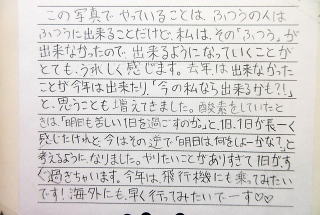 この写真でやっていることは、ふつうの人は
ふつうに出来ることだけど、私は、その「ふつう」が
出来なかったので、出来るようになっていくことが
とても、うれしく感じます。去年は出来なかった
ことが今年は出来たり、「今の私なら出来るかも?!」
と、思うことも増えてきました。酸素をしていたと
きは、「明日も苦しい1日を過ごすのか。」と、1日、1日が長ーく
感じたけれど、今はその逆で「明日は、何をしよーかな?」と
考えるように、なりました。やりたいことがありすぎて1日がす
ぐ過ぎちゃいます。今年は、飛行機にも乗ってみたい
です!海外にも、早く行ってみたいでーす♡♡